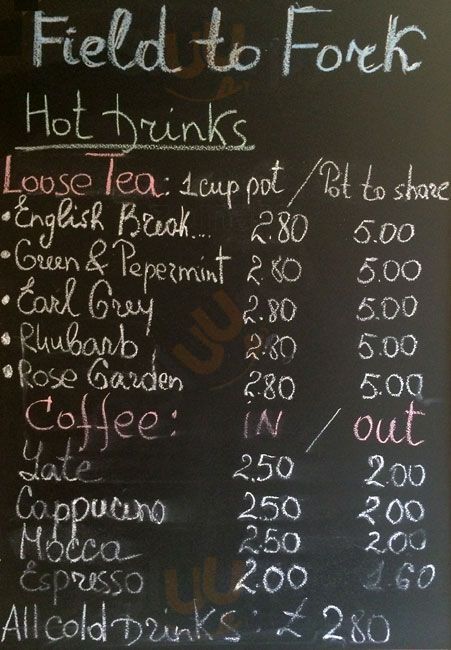 Field to Fork
Hot Drinks
Loose Tea: 1 cup pot / Pot to share
• English Break... 2.80 5.00
• Green & Pepermint 2.80 5.00
• Earl Grey 2.80 5.00
• Rhubarb 2.80 5.00
• Rose Garden 2.80 5.00
Coffee: IN / out
Late 2.50 2.00
Cappucino 2.50 2.00
Mocca 2.50 2.00
Espresso 2.00 1.60
All cold Drinks: £ 2.80